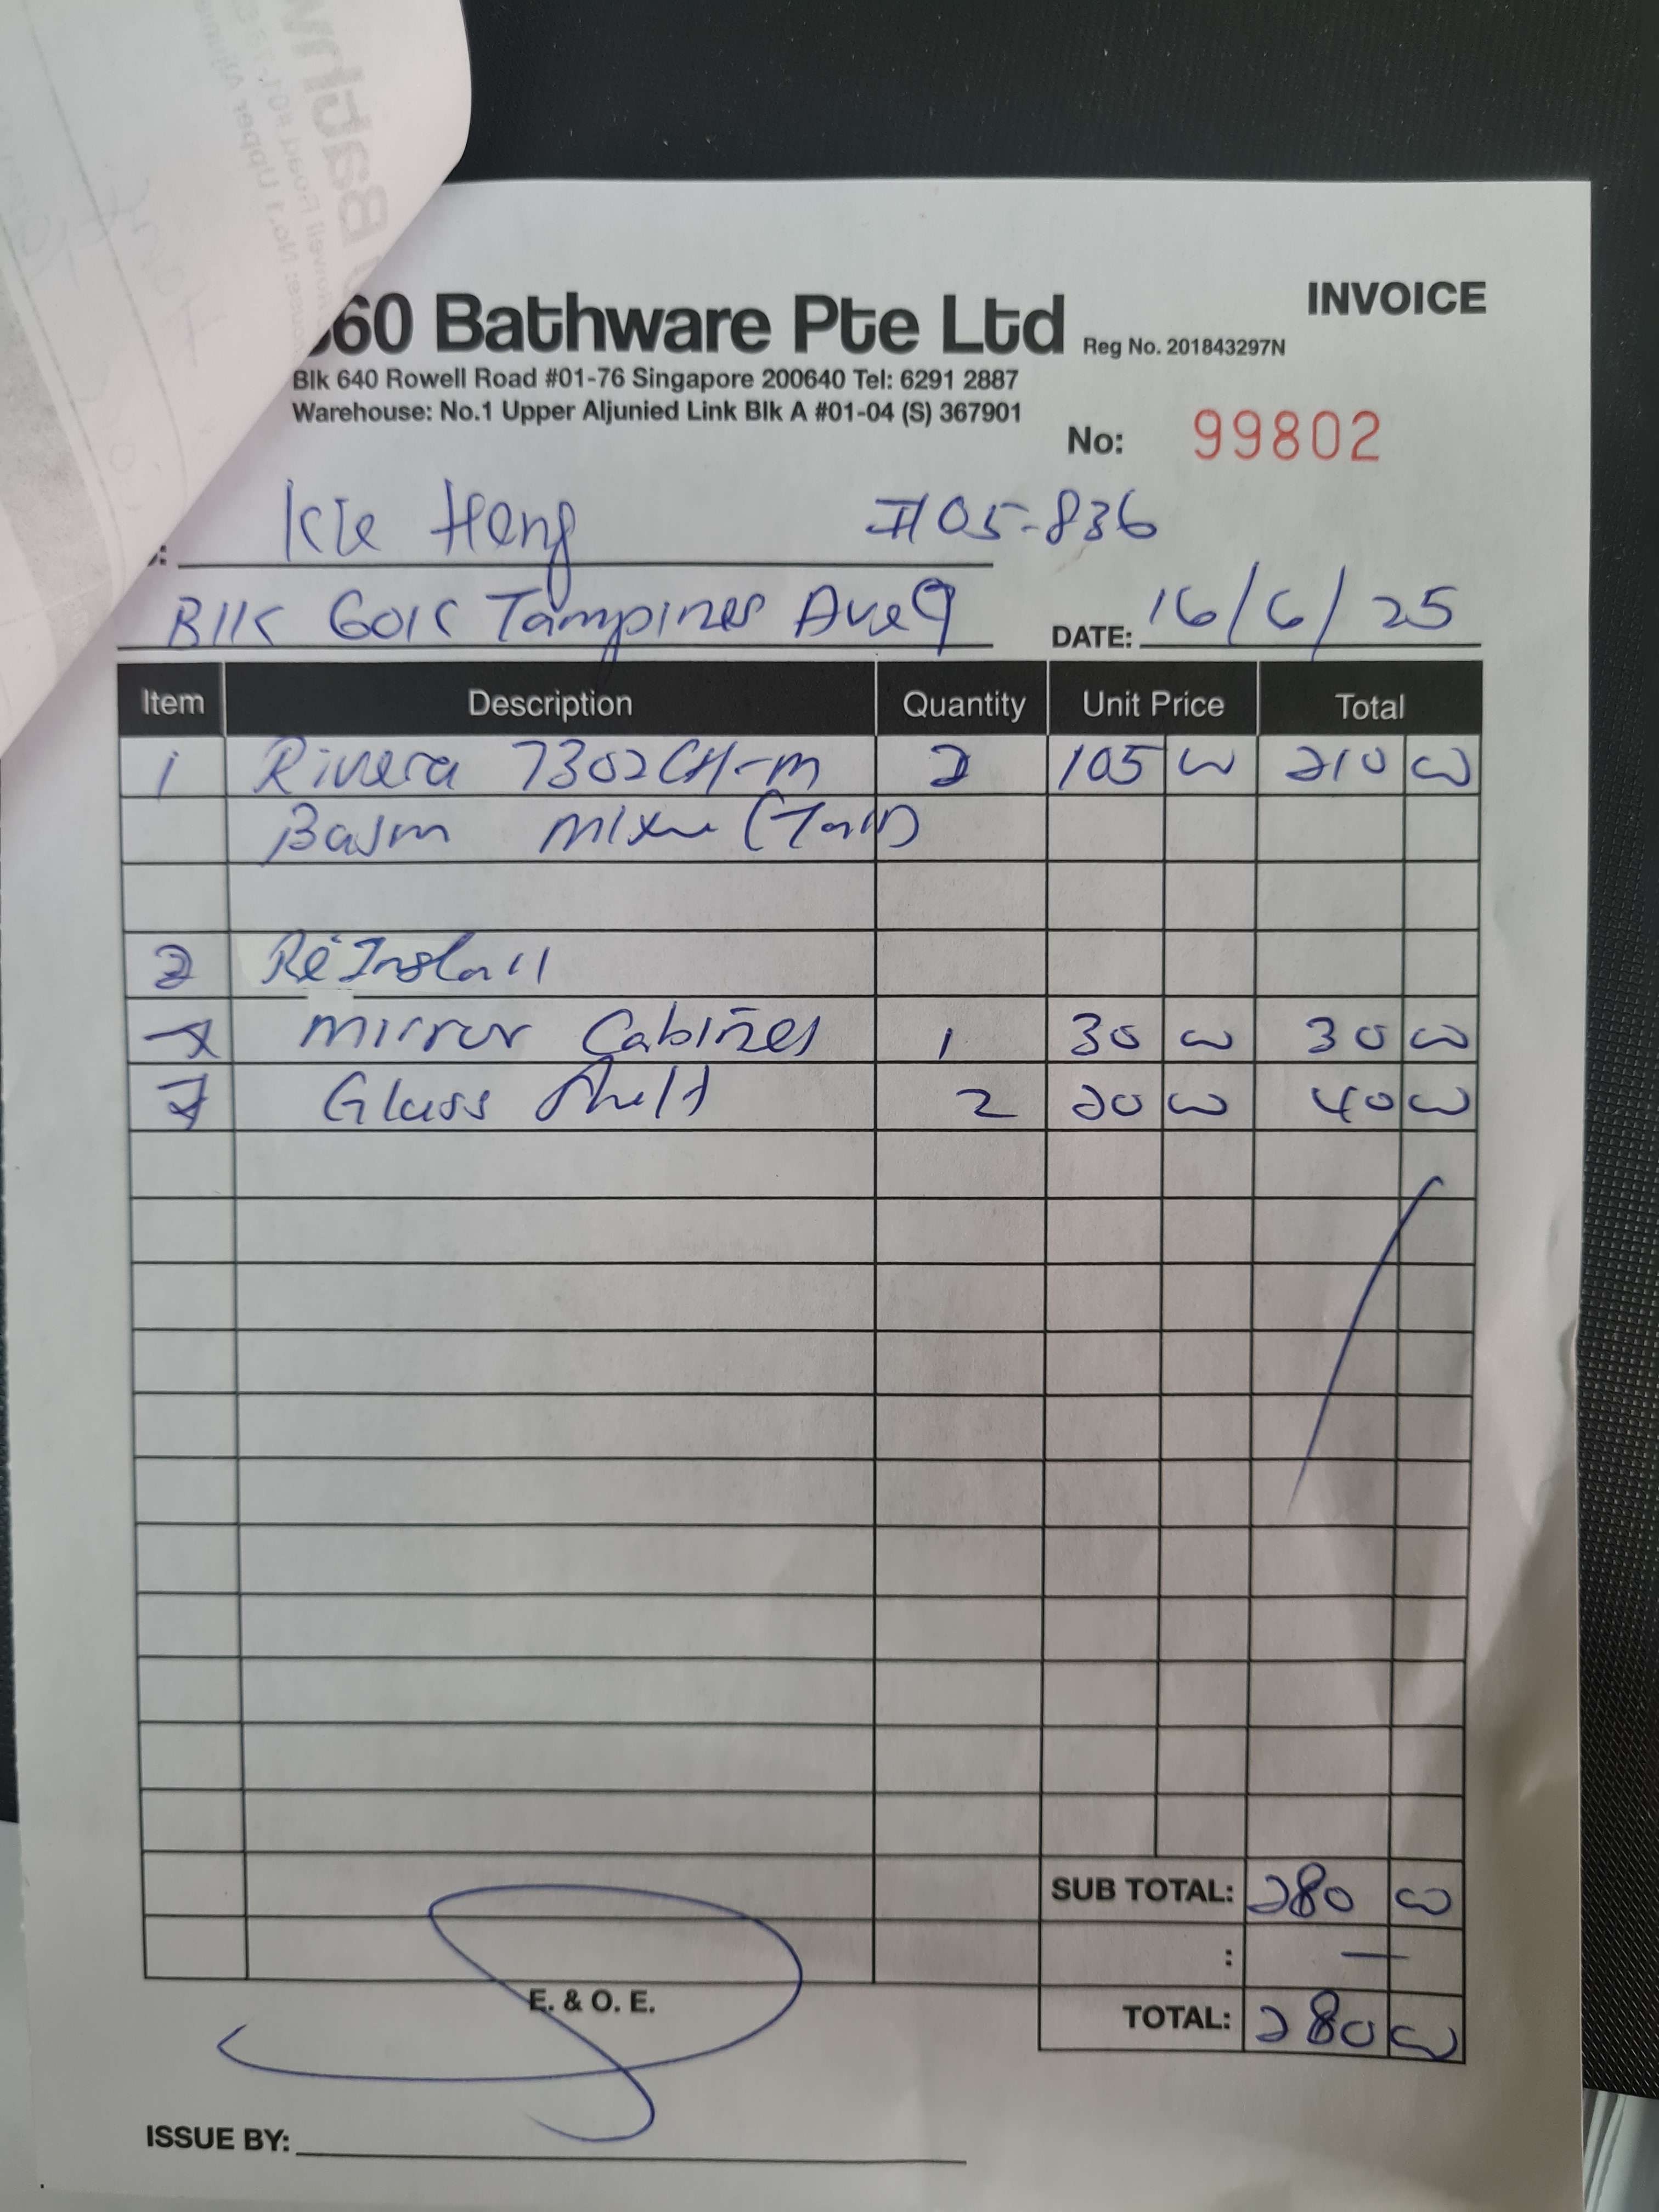 60 Bathware Pte Ltd
Reg No. 201843297N
INVOICE
Blk 640 Rowell Road #01-76 Singapore 200640 Tel: 6291 2887
Warehouse: No.1 Upper Aljunied Link Blk A #01-04 (S) 367901
No: 99802
Kie Heng #05-836
Blk 601C Tampines Ave 9
DATE: 16/6/25
Item Description Quantity Unit Price Total
1 Rivera 7302CH-M 2 105 00 210 00
Basin Mixer (Tall)
2 Re Install
Mirror Cabinet 1 30 00 30 00
Glass Shelf 2 20 00 40 00
SUB TOTAL: 280 00
: —
E. & O. E.
TOTAL: 280 00
ISSUE BY: